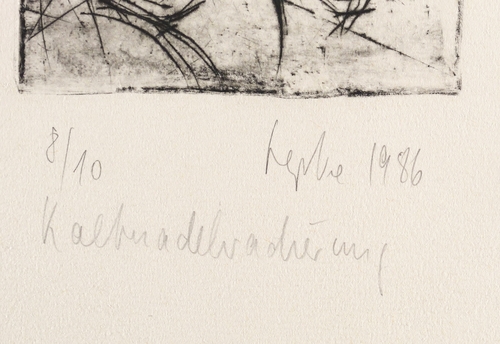 8/10 1986
Kaltnadelradierung